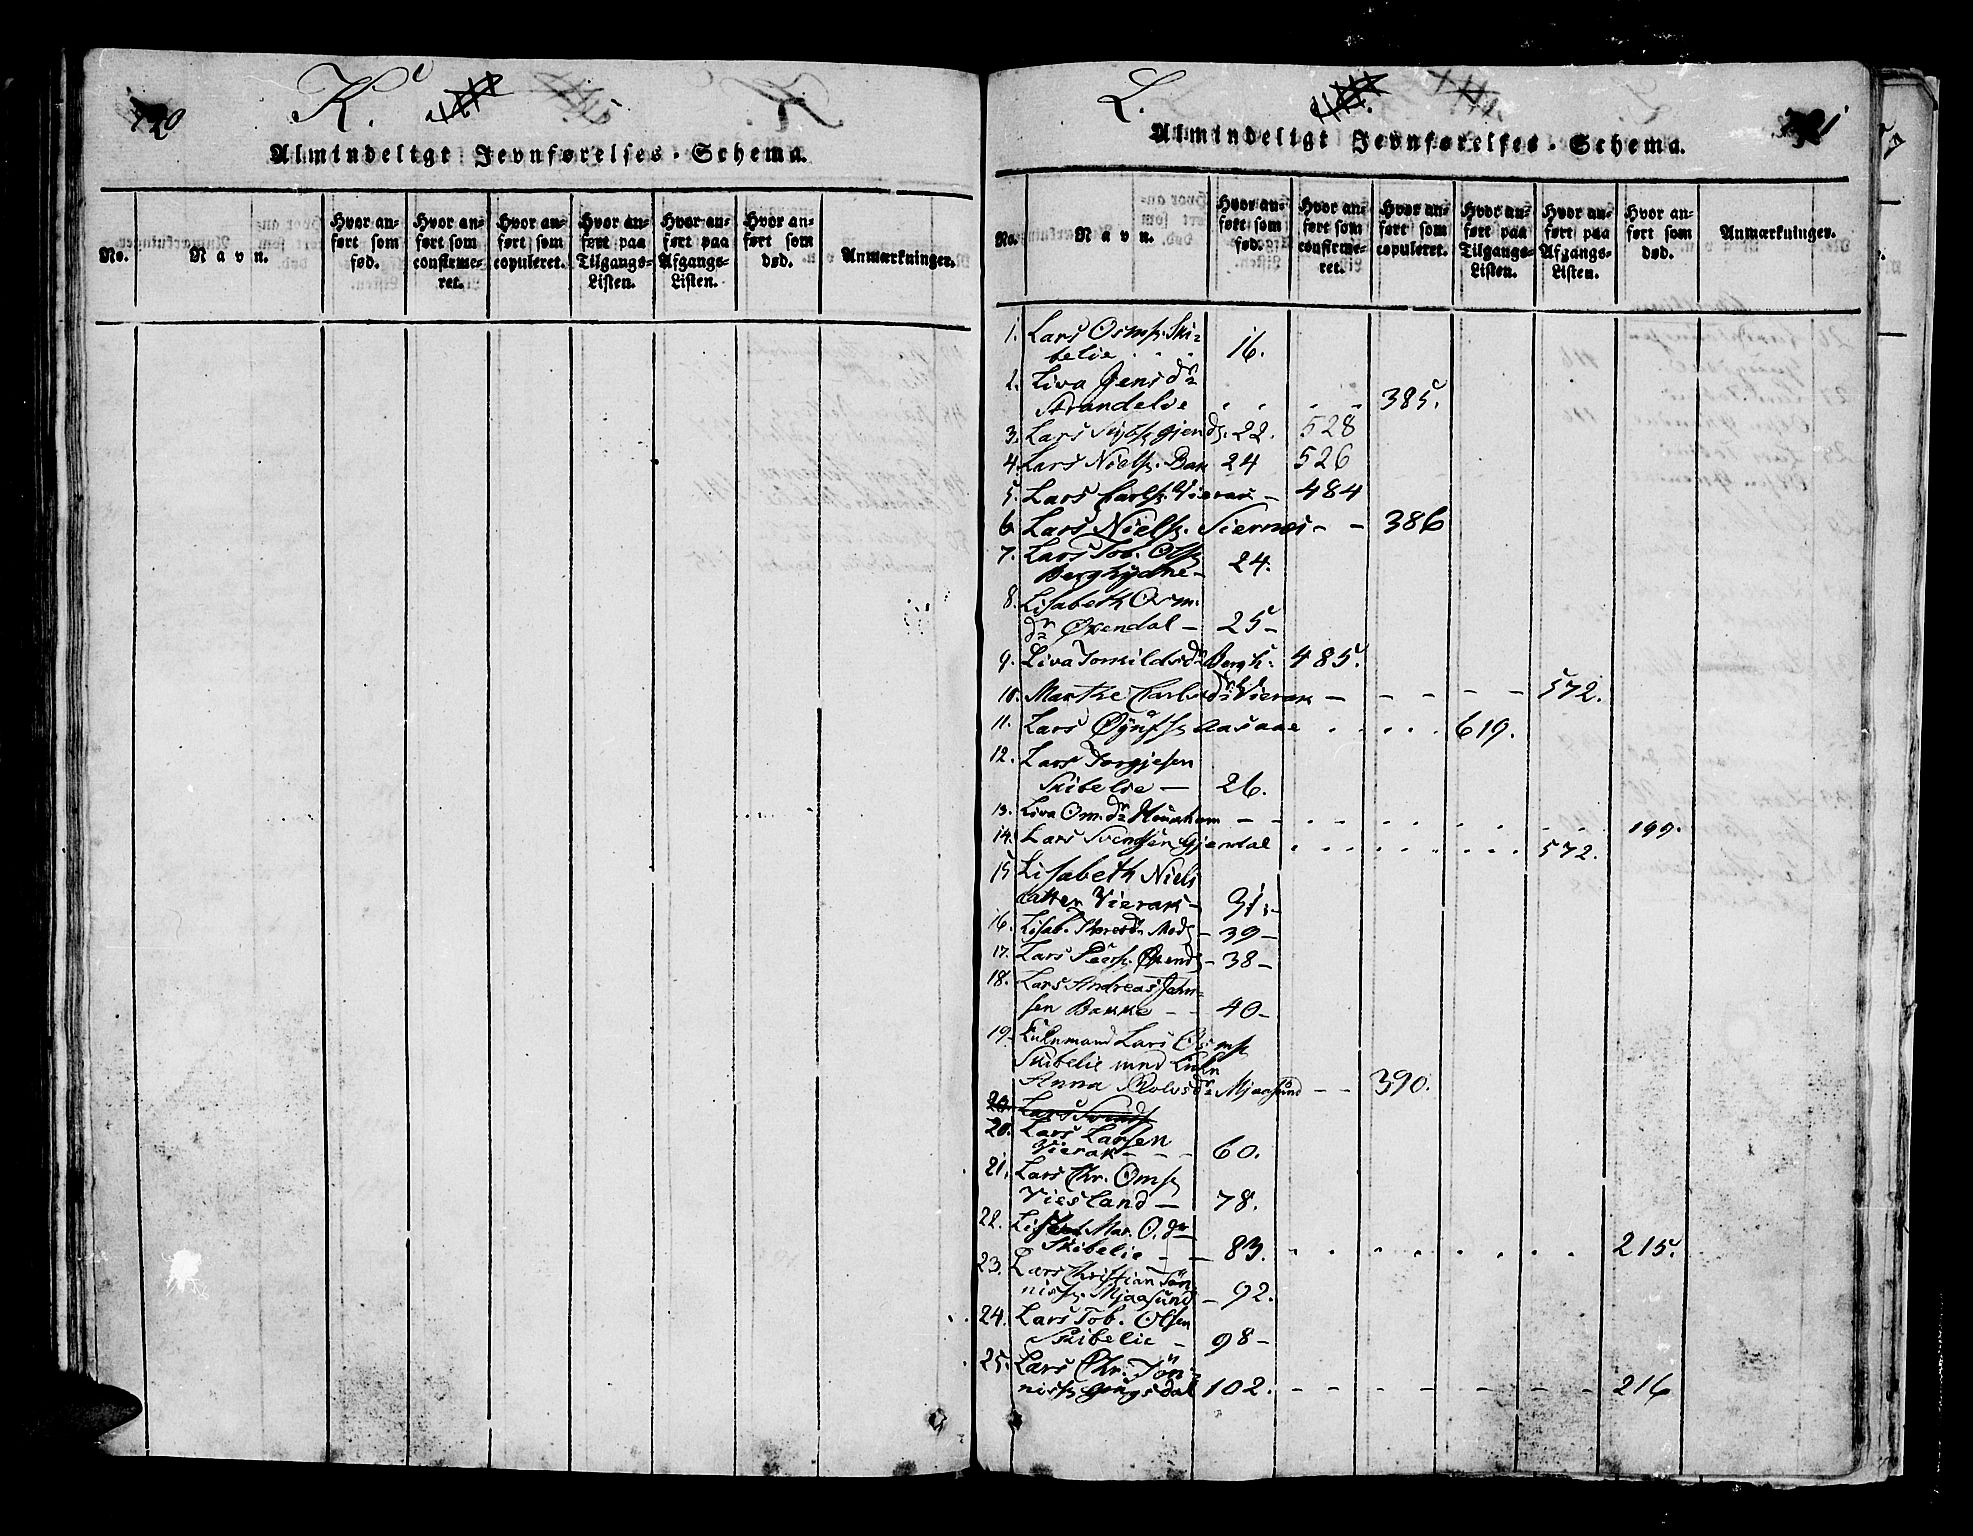 720
K.
Almindeligt Jevnførelses-Schema.
No.
Navn.
Hvor anført som fød.
Hvor anført som confirmeret.
Hvor anført som copuleret.
Hvor anført paa Tilgangs-Listen.
Hvor anført paa Afgangs-Listen.
Hvor anført som død.
Anmærkninger.
L.
721
Almindeligt Jevnførelses-Schema.
No.
Navn.
Hvor anført som fød.
Hvor anført som confirmeret.
Hvor anført som copuleret.
Hvor anført paa Tilgangs-Listen.
Hvor anført paa Afgangs-Listen.
Hvor anført som død.
Anmærkninger.
1. Lars Ormss. Ski=
belie . . . 16.
2. Liva Jensdr
Strandelie . . . . 385.
3. Lars 22. 528
4. Lars Nielss. Bak 24 526
5. Lars Carlss. Vierak - 484
6. Lars Nielss. Siernes - - 386
7. Lars Tob. Olss
Berghydne - 24.
8. Lisabeth Orm.
dr Øxendal - 25-
9. Liva Torkildsdr Bergh. 485.
10. Marthe Carlsdr Vierak - - - - - 572.
11. Lars Aasaae . . . . 619.
12. Lars Torgjesen
Skibelie - 26.
13. Liva Om.dr - - - - - - - 199.
14. Lars Svendsen Gjendal . . . . . . . 572.
15 Lisabeth Niels
datter Vierak - 31.-
16. Lisab. - 39-
17. Lars Peerss. Øxend. - 38-
18. Lars Andreas Jahn=
sen Bakke - - 40-
19. Lars Ormss
Skibelie
Anna Mjaasund - - 390.
20. Lars Svends
20. Lars Larsen
Vierak - - - 60.
21. Lars Chr. Omss
Viesland - 78.
22. Mar. O.dr
Skibelie - - 83. . . . . . . . 215.
23. Lars Christian Tön
niss. Mjaasund - 92.
24. Lars Tob. Olsen
Skibelie - 98-
25. Lars Chr. Tön=
niss. 102. - - - - - - - 216